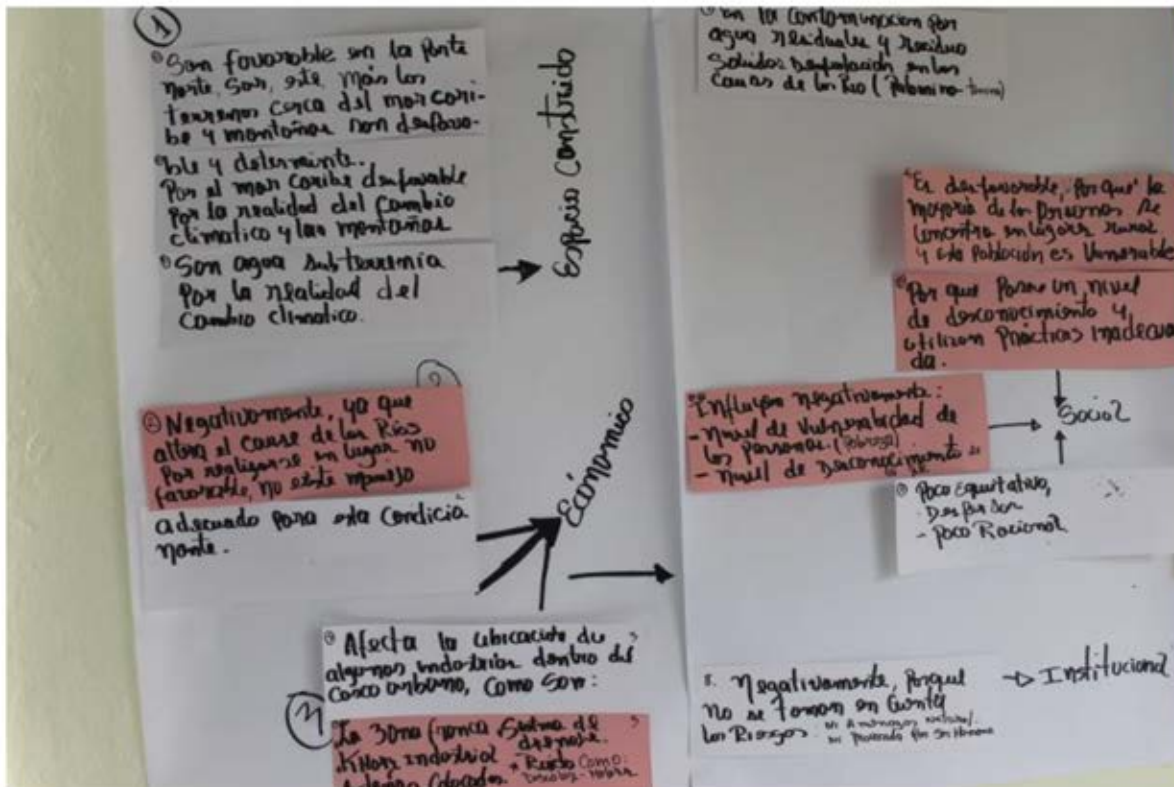 1
Son favorable en la Parte
norte, Sur, este más los
terrenos cerca del mar cari-
be y montañas son desfavo-
ble y determinte.
Por el mar caribe desfavorable
Por la realidad del Cambio
climatico y las montañas
Son agua subterrenia
Por la realidad del
Cambio climatico.
Espacio Construido
2
Negativamente, ya que
altera el cause de los Ríos
Por realizarse en lugar no
favorable, no existe manejo
adecuado para esta condicio
nante.
Económico
Afecta la ubicación de
algunas industrias dentro del
Casco urbano, Como son:
La Zona franca
industrial
Colocadas
Ruido Como:
en la Contaminacion Por
agua residuales y residuo
Solidos en los
Causas de los Rio
Es desfavorable, Porque la
mayoria de las Personas se
encontra en lugares rural
y esta Población es Vunerable
Por que Posee un nivel
de desconocimiento y
utilizan Prácticas inadecua
da.
Influyen negativamente:
- Nivel de Vulnerabilidad de
las personas. (Pobreza)
- Nivel de Desconocimiento
Social
Poco Equitativo,
- Poco Racional
Negativamente, Porque
No se Toman en Cuenta
Los Riesgos
Institucional